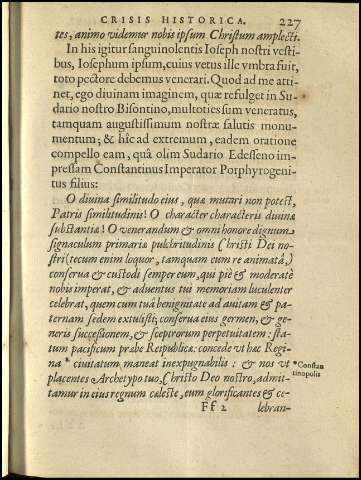 CRISIS HISTORICA. 227
tes, animo videmur nobis ipsum Christum amplecti.
In his igitur sanguinolentis Ioseph nostri vesti-
bus, Iosephum ipsum, cuius vetus ille vmbra fuit,
toto pectore debemus venerari. Quod ad me atti-
net, ego diuinam imaginem, quæ refulget in Su-
dario nostro Bisontino, multoties sum veneratus,
tamquam augustissimum nostræ salutis monu-
mentum; & hîc ad extremum, eadem oratione
compello eam, quâ olim Sudario Edesseno im-
pressam Constantinus Imperator Porphyrogeni-
tus filius:
O diuina similitudo eius, quæ mutari non potest,
Patris similitudinis! O character characteris diuinæ
substantiæ! O venerandum & omni honore dignum
signaculum primariæ pulchritudinis Christi Dei no-
stri (tecum enim loquor, tamquam cum re animatâ)
conserua & custodi semper eum, qui piè & moderatè
nobis imperat, & aduentus tui memoriam luculenter
celebrat, quem cum tuâ benignitate ad auitam & pa-
ternam sedem extulisti; conserua eius germen, & ge-
neris successionem, & sceptrorum perpetuitatem: sta-
tum pacificum præbe Reipublicæ: concede vt hæc Regi-
na * ciuitatum maneat inexpugnabilis: & nos vt
*Constan
tinopolis
placentes Archetypo tuo, Christo Deo nostro, admit-
tamur in eius regnum cæleste, eum glorificantes & ce-
Ff 2 lebran-